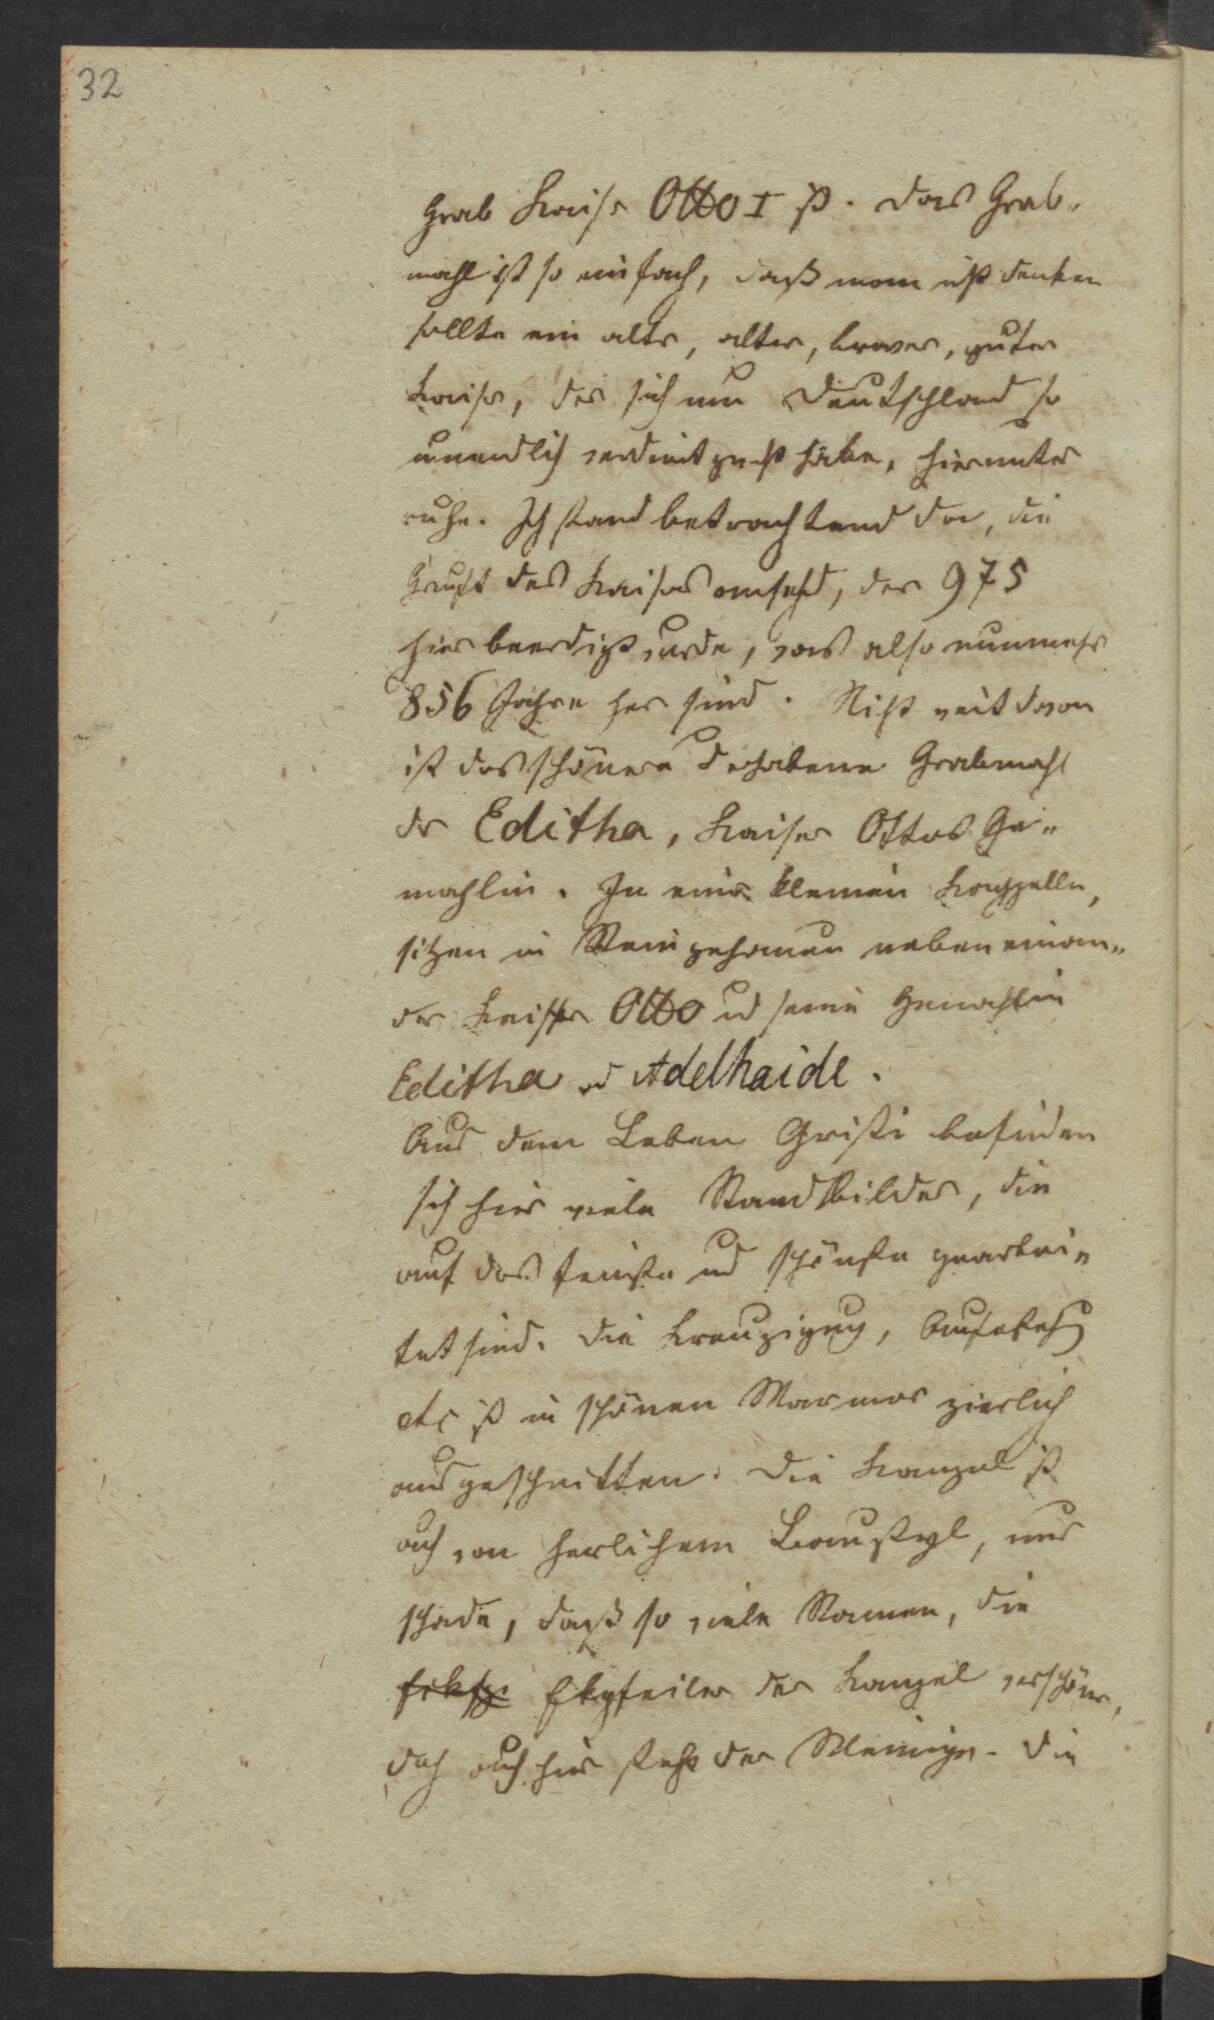 32
Grab Kaiser Otto I ist. Das Grab„
mahl ist so einfach, daß man nicht denken
sollte ein alter, alter, braver, guter
Kaiser, der sich um Deutschland so
unendlich verdient gemacht habe, hierunter
ruhe. Ich stand betrachtend da, die
Gruft des Kaisers ansehend, der 975
hier beerdigt wurde, was also nunmehr
856 Jahre her sind. Nicht weit davon
ist das schönere erhabene Grabmahl
der Editha, Kaiser Ottos Ge„
mahlin. In einer kleinen Kappelle,
sitzen in Stein gehauen neben einan„
der Kaiser Otto und seine Gemahlin
Editha und Adelhaide.
Aus dem Leben Christi befinden
sich hier viele Standbilder, die
auf das feinste und schönste gearbei„
tet sind. Die Kreuzigung, Auferstehung
etc ist in schönen Marmor zierlich
ausgeschnitten. Die Kanzel ist
auch von herlichem Baustyl, nur
schade, daß so viele Namen, die
Ekpfeiler der Kanzel verschönern,
doch auch hier steht der Meinige. Die